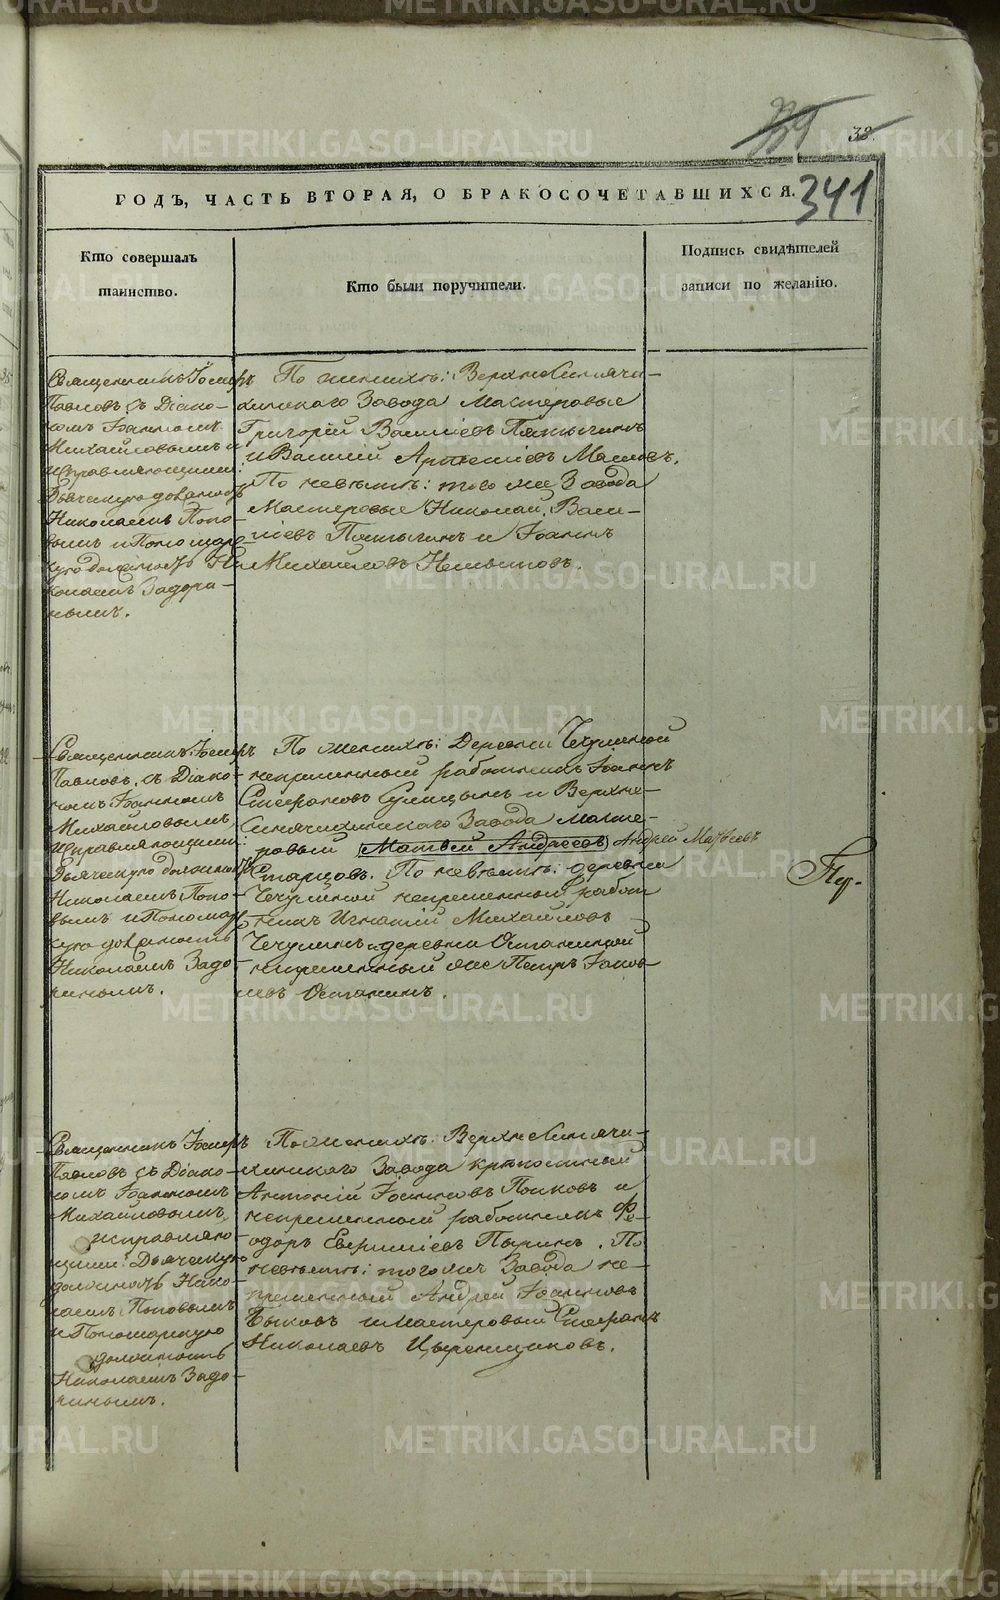 339
38.
341
ГОДЪ, ЧАСТЬ ВТОРАЯ, О БРАКОСОЧЕТАВШИХСЯ.
Кто совершалъ
таинство.
Кто были поручители.
Подпись свидѣтелей
записи по желанію.
Священникъ Іосифъ
Павловъ съ Діако-
номъ Іоанномъ
Михайловымъ и
исправляющими:
Дьяческую должность
Николаемъ Попо-
вымъ и Пономар-
скую должность Ни-
колаемъ Задори-
нымъ.
По женихѣ: Верхнесинячи-
хинскаго Завода Мастеровые
Григорій Василіевъ Пятыгинъ
и Василій Артеміевъ Масловъ.
По невѣстѣ: того же Завода
Мастеровые Николай Васи-
ліевъ Пятыгинъ и Іоаннъ
Михайловъ
Священникъ Іосифъ
Павловъ, съ Діако-
номъ Іоанномъ
Михайловымъ,
исправляющими:
Дьяческую должность
Николаемъ Попо-
вымъ и Пономар-
скую должность
Николаемъ Задо-
ринымъ.
По женихѣ: Деревни Чечулиной
непременный работникъ Іоаннъ
Стефановъ и Верхне-
Синячихинскаго Завода Масте-
ровый Матвей Андреевъ Андрей Матвеевъ
Старцовъ. По невѣстѣ: деревни
Чечулиной непременный работ-
никъ Игнатій Михайловъ
Чечулинъ и деревни Останиной
непременный же Петръ Іаков-
левъ Останинъ.
Священникъ Іосифъ
Павловъ съ Діако-
номъ Іоанномъ
Михайловымъ,
исправляю-
щими: Дьяческую
должность Нико-
лаемъ Поповымъ
и Пономарскую
должность
Николаемъ Задо-
ринымъ.
По женихѣ: Верхнесинячи-
хинскаго Завода крѣпостный
Антоній Іоанновъ Попковъ и
непременной работникъ Фе-
одоръ Пыринъ. По
невѣстѣ: того жъ Завода не-
пременный Андрей Іоанновъ
Быковъ и Мастеровый Стефанъ
Николаевъ Цыренщиковъ.